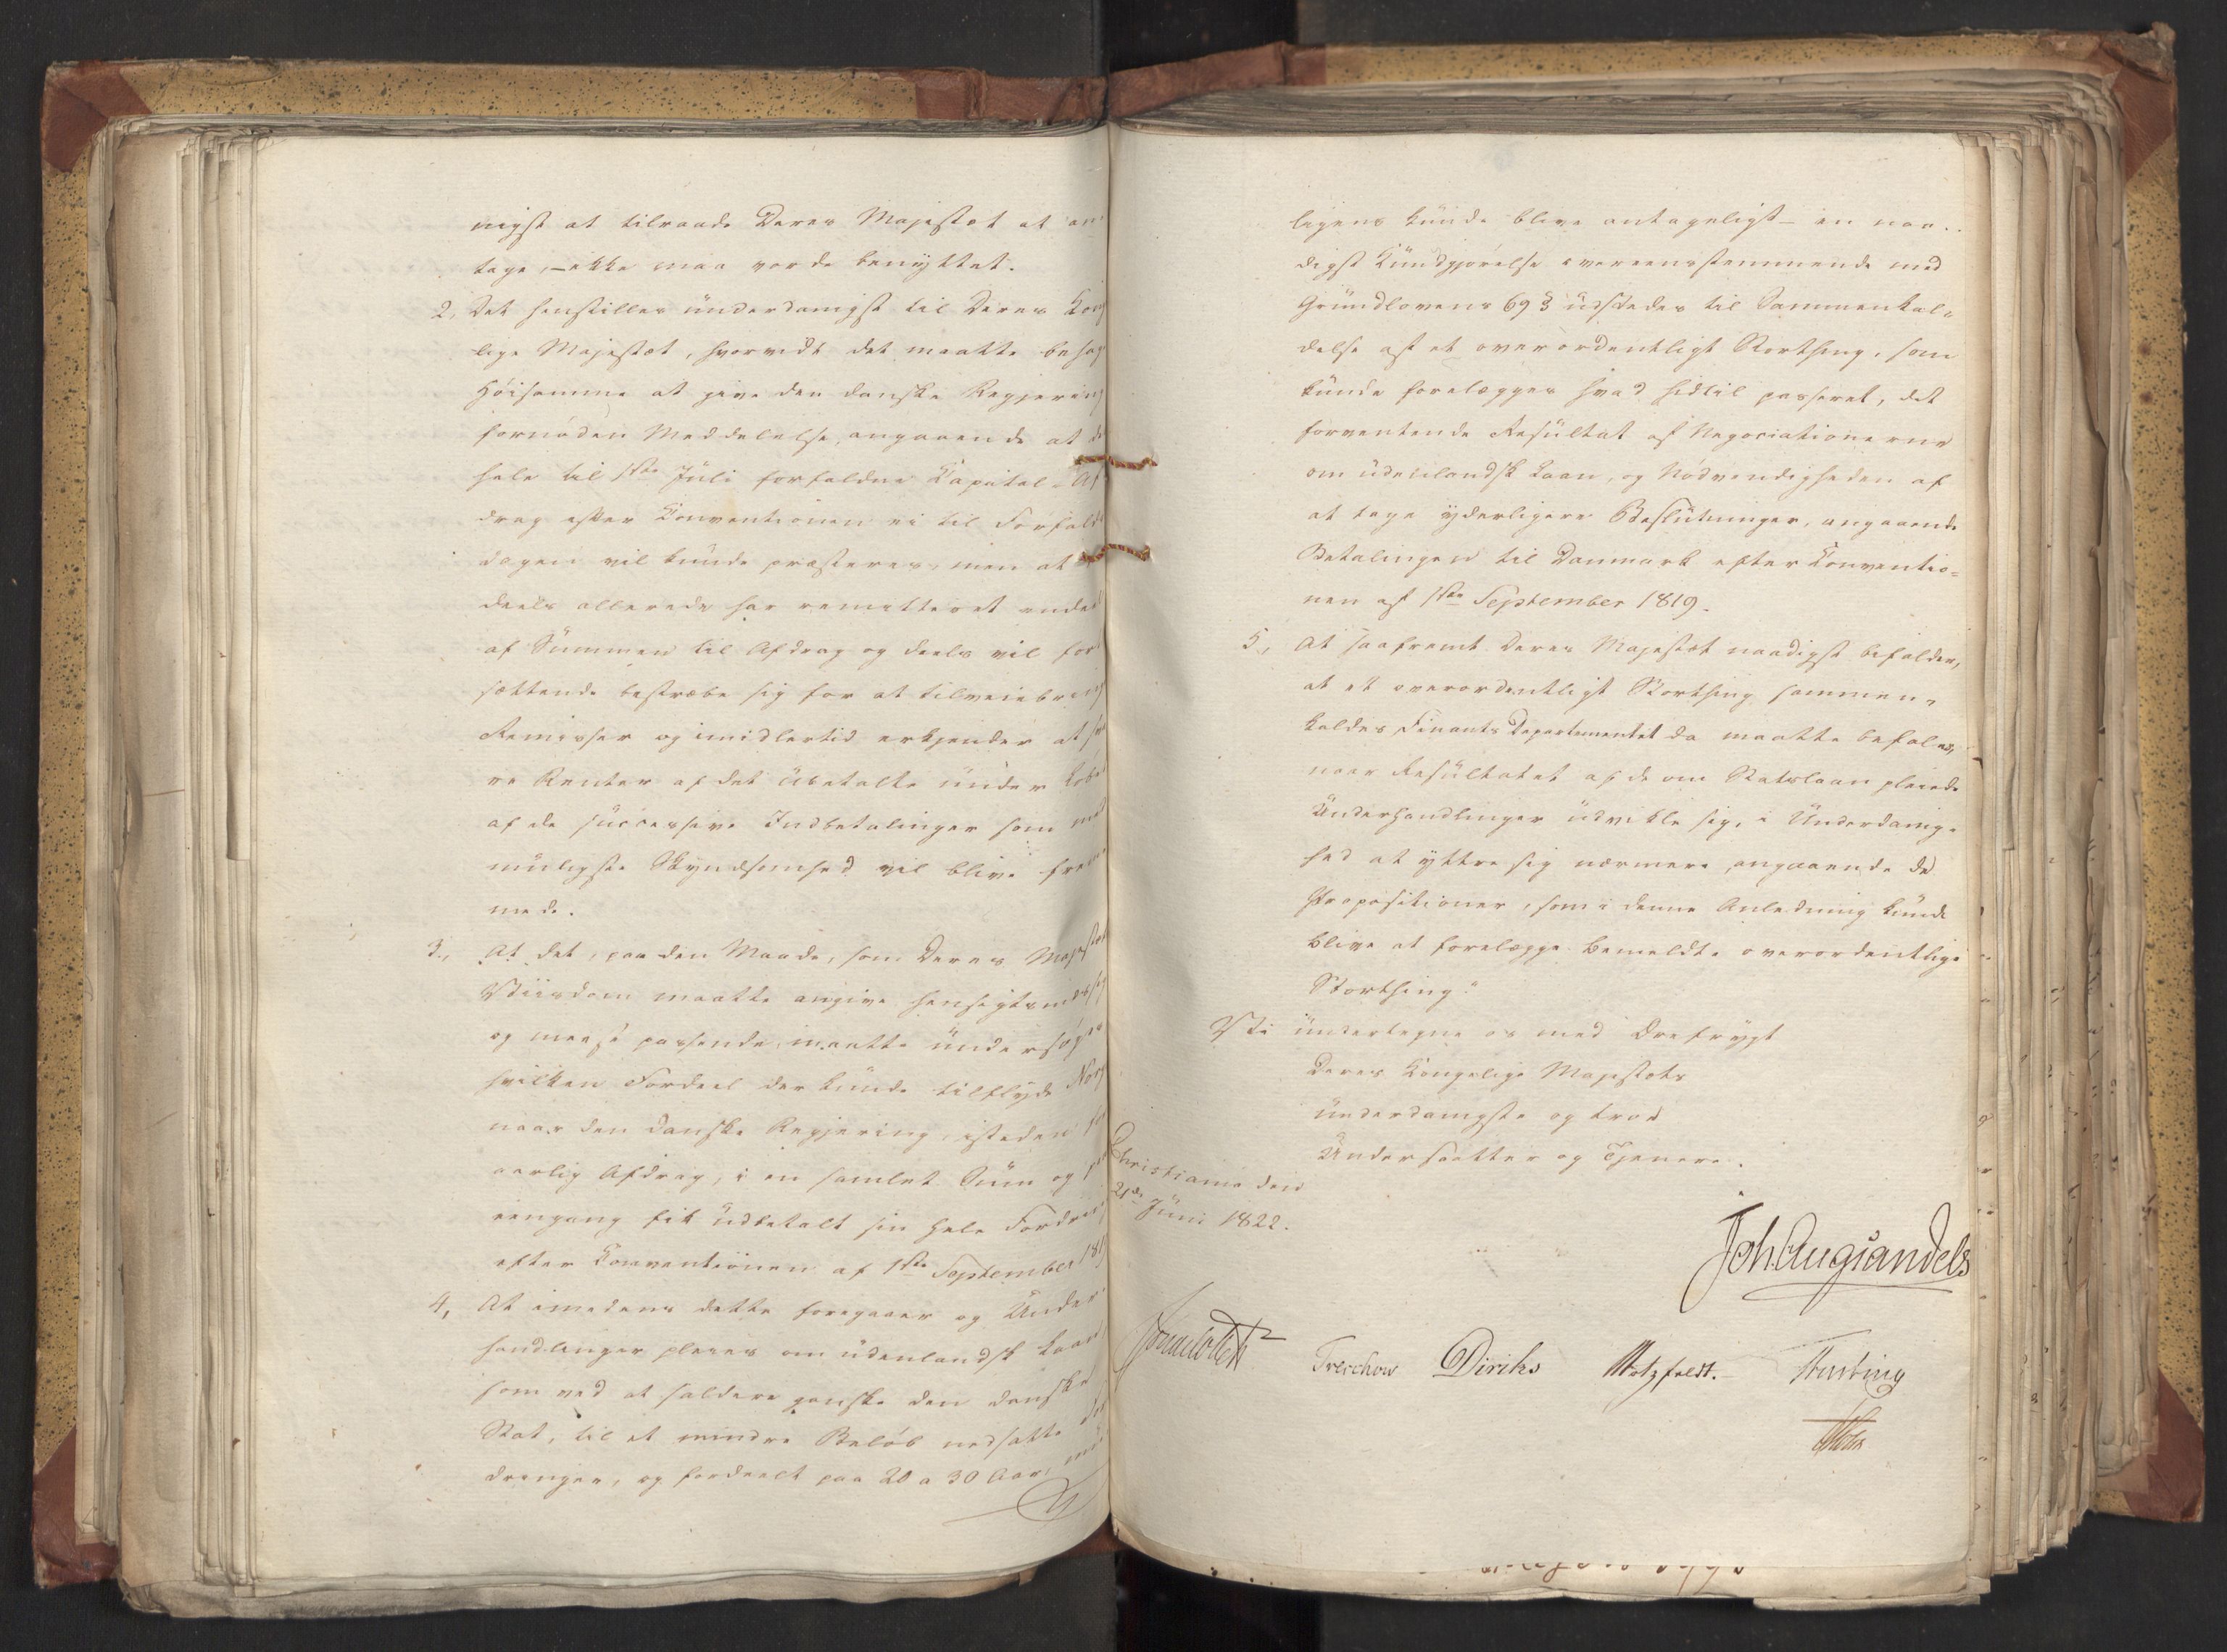 nigst at tilraade Deres Majestæt at an-
tage, – ikke maa vorde benyttet.
2, Det henstilles underdanigst til Deres Kong
lige Majestæt, hvorvidt det maatte behag
Høisamme at give den danske Regjering
fornøden Meddelelse angaaende at de
hele til 1ste Juli forfaldne Kapital-Af
drag efter Konventionen ei til Forfalds
dagen vil kunde præsteres, men at
deels allerede har remitteret endeel
af Summen til Afdrag og deels vil for
sættende bestræbe sig for at tilveiebring
Remisser og imidlertid erkjender at
re Renter af det Ubetalte under Løbet
af de successive Indbetalinger som med
muligste Skyndsomhed vil blive frem
mede.
3., At det, paa den Maade, som Deres Majestæts
Viisdom maatte angive hensigtsmæssig
og meest passende, maatte undersøges
hvilken Fordeel der kunde tilflyde Norg
naar den danske Regjering, isteden for
aarlig Afdrag, i en samlet Sum og paa
eengang fik udbetalt sin hele Fordring
efter Konventionen af 1ste September 1819
4, At imedens dette foregaaer og Under-
handlinger pleies om udenlandsk Laan
som ved at saldere ganske den danske
Stat, til et mindre Beløb nedsatte
dringer, og fordeelt paa 20 a 30 Aar,
ligens kunde blive antageligt – en naa-
digst Kundgjørelse overeensstemmende med
Grundlovens 69 § udstedes til Sammenkal-
delse af et overordentligt Storthing, som
kunde forelægges hvad hidtil passeret, det
forventende Resultat af Negociationerne
om udenlandsk Laan, og Nødvendigheden af
at tage yderligere Beslutninger, angaaende
Betalingen til Danmark efter Konventio-
nen af 1ste September 1819.
5, At saafremt Deres Majestæt naadigst befalder,
at et overordentligt Storthing sammen-
kaldes, Finants Departementet da maatte befales,
naar Resultatet af de om Statslaan pleiede
Underhandlinger udvikle sig, i Underdanig-
hed at yttre sig nærmere angaaende de
Propositioner, som i denne Anledning kunde
blive at forelægge bemeldte overordentlige
Storthing."
Vi undertegne os med Ærefrygt
Deres Kongelige Majestæts
underdanigste og troe
Undersaatter og Tjenere.
Christiania den
21de Juni 1822.
Joh. Aug Sandels
Sommerhielm
Treschow Diriks Motzfeldt. Fasting
Holst